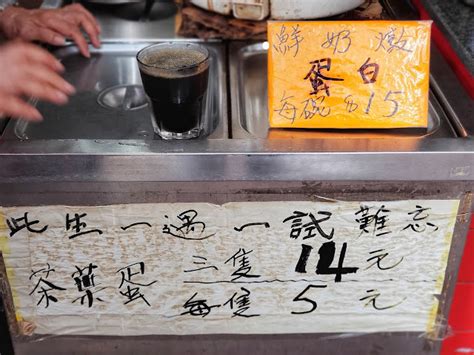 鮮奶燉
蛋白
每碗$15
此生一遇一試難忘
茶葉蛋三隻14元
每隻5元